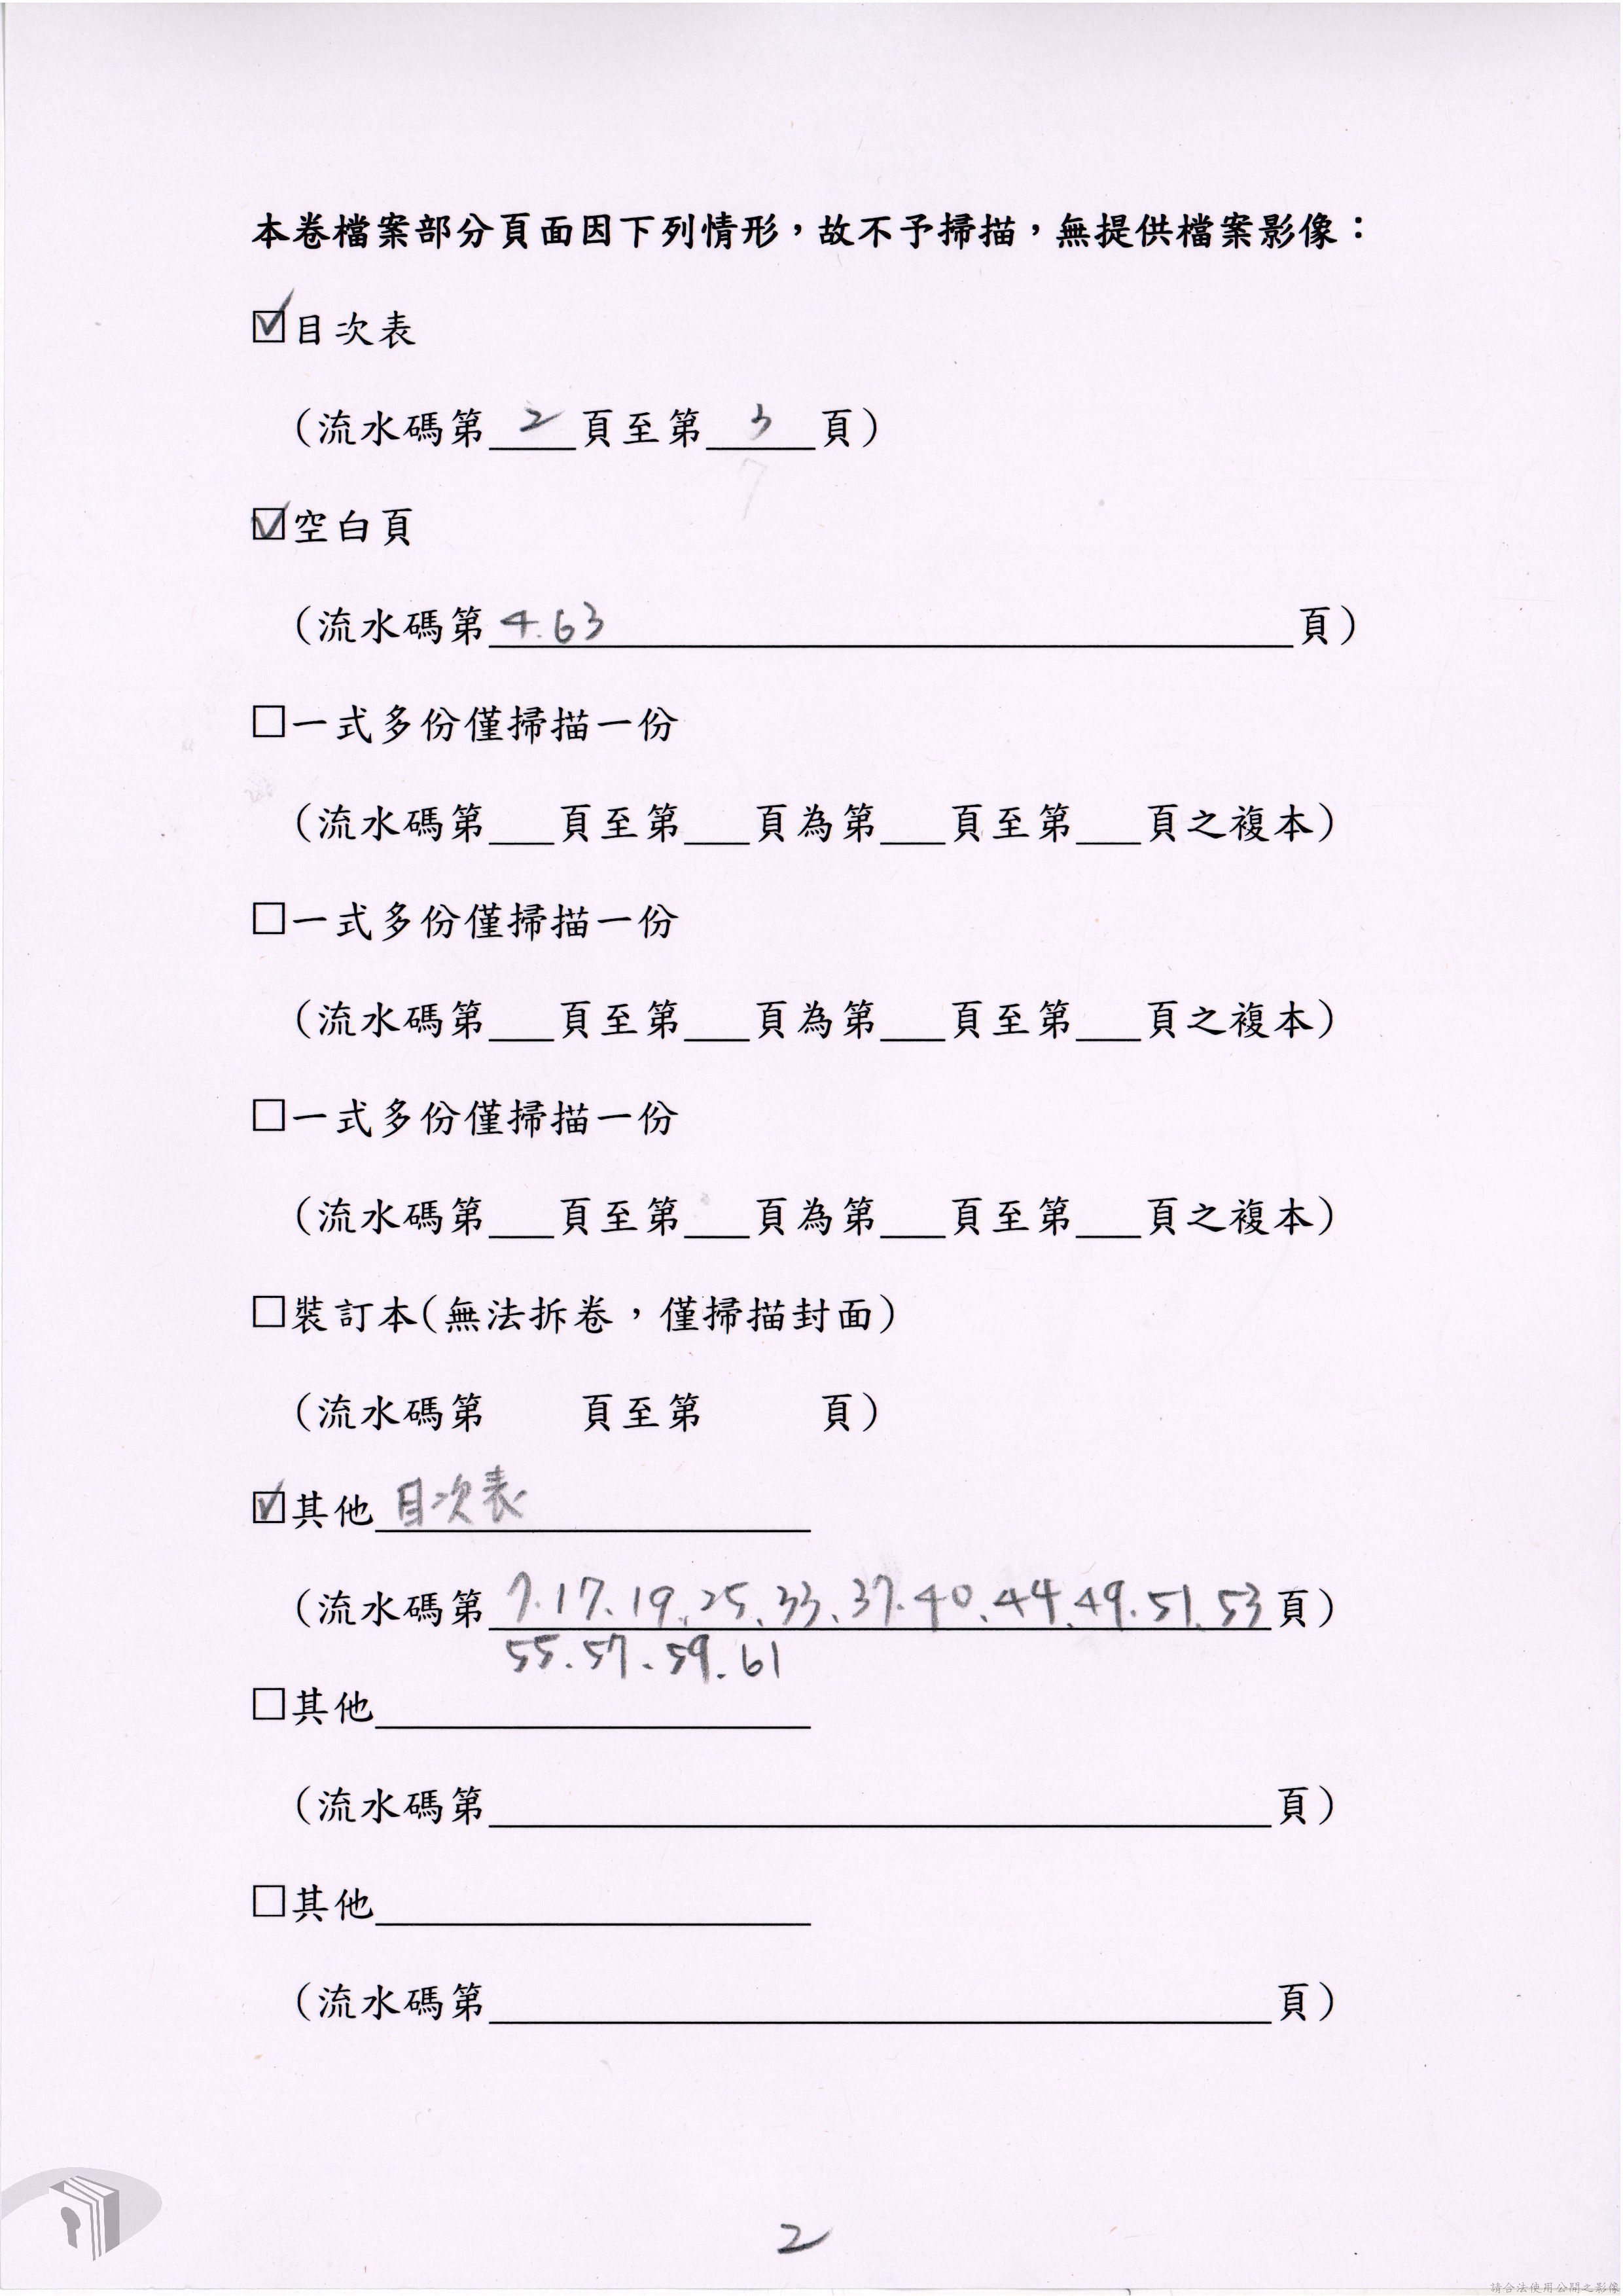 本卷檔案部分頁面因下列情形，故不予掃描，無提供檔案影像：
☑目次表
（流水碼第 2 頁至第 3 頁）
☑空白頁
（流水碼第 4.63 頁）
□一式多份僅掃描一份
（流水碼第___頁至第___頁為第___頁至第___頁之複本）
□一式多份僅掃描一份
（流水碼第___頁至第___頁為第___頁至第___頁之複本）
□一式多份僅掃描一份
（流水碼第___頁至第___頁為第___頁至第___頁之複本）
□裝訂本(無法拆卷，僅掃描封面)
（流水碼第 頁至第 頁）
☑其他 目次表
（流水碼第 7.17.19.25.33.37.40.44.49.51.53 頁）
55.57.59.61
□其他__________
（流水碼第__________頁）
□其他__________
（流水碼第__________頁）
2
請合法使用公開之影像